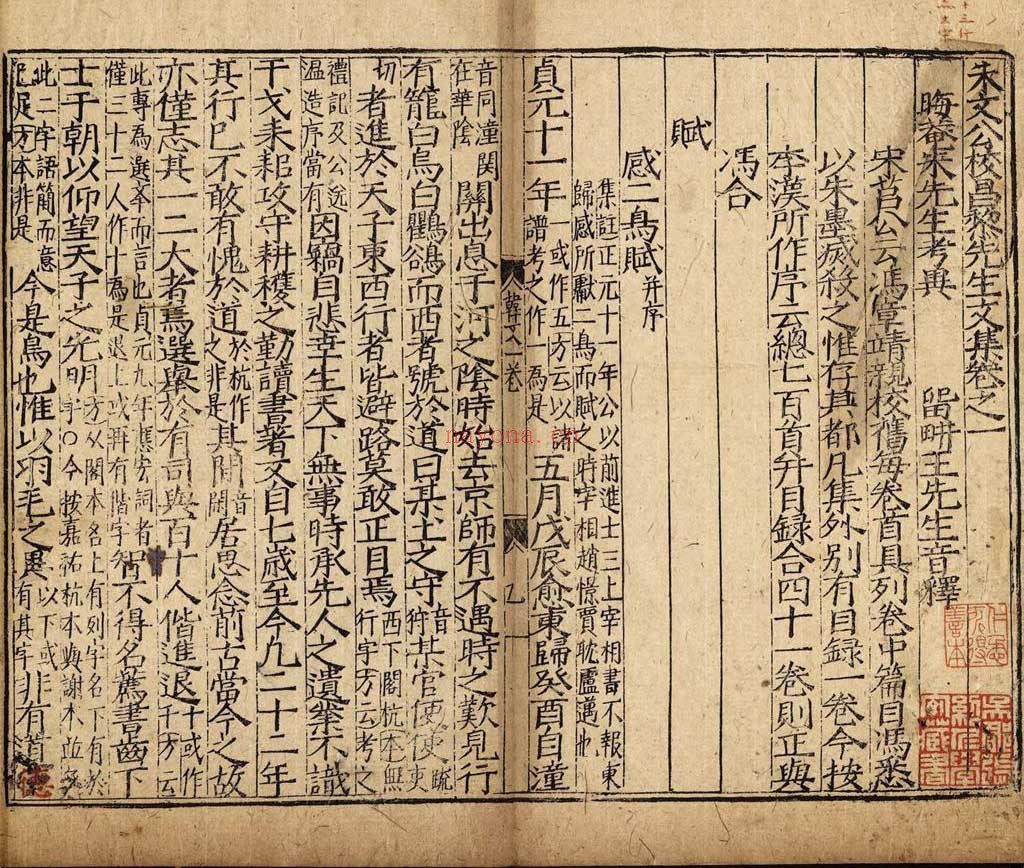 朱文公校昌黎先生文集卷之一
晦菴朱先生考異　留畊王先生音釋
宋莒公云馮章靖親校舊每卷首具列卷中篇目馮悉
以朱墨滅殺之惟存其都凡集外別有目録一卷今按
李漢所作序云總七百首并目録合四十一卷則正與
馮合
賦
感二鳥賦并序
集註正元十一年公以前進士三上宰相書不報東
歸感所獻二鳥而賦之時宰相趙憬賈耽盧邁也
貞元十一年
一或作五方云以諸
譜考之作一為是
五月戊辰愈東歸癸酉自潼
音同潼關
在華陰
關出息于河之陰時始去京師有不遇時之歎見行
有籠白烏白鸜鵒而西者號於道曰某土之守
音
狩
某官使使
疏
吏
切
者進於天子東西行者皆避路莫敢正目焉
西下閣杭本無
行字方云考之
禮記及公送
温造序當有
因竊自悲幸生天下無事時承先人之遺業不識
干戈耒耜攻守耕穫之勤讀書著文自七歲至今凡二十二年
其行已不敢有愧於道
於杭作
之非是
其閒
音
閑
居思念前古當今之故
亦僅志其一二大者焉選舉於有司與百十人偕進退
千或作
千方云
此專為選舉而言也貞元九年應宏詞者
僅三十二人作十為是退上或再有偕字
曽不得名薦書齒下
士于朝以仰望天子之光明
方从閣本名上有列字名下有於
字○今按嘉祐杭本與謝本並
此二字語簡而意
足方本非是
今是鳥也惟以羽毛之異
以下或
有其字
非有道